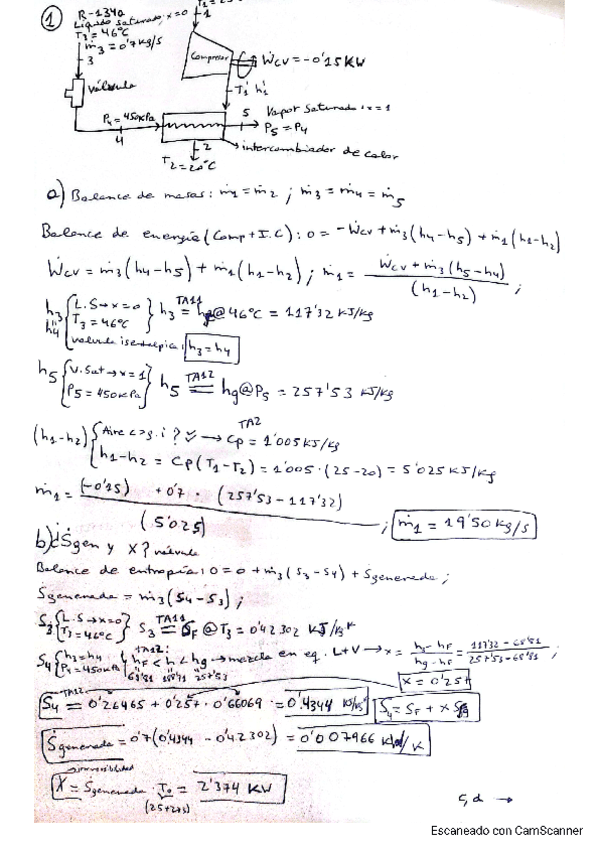 1
R-134a
Líquido saturado, x=0
T3 = 46°C
ṁ3 = 0'7 kg/s
3
válvula
P4 = 450kPa
4
1
Compresor
Ẇcv = -0'15 KW
T1' h1'
5 Vapor Saturado: x=1
P5 = P4
2
intercambiador de calor
T2 = 20°C
a) Balance de masas: ṁ1 = ṁ2 ; ṁ3 = ṁ4 = ṁ5
Balance de energía (Comp + I.C): 0 = -Ẇcv + ṁ3(h4-h5) + ṁ1(h1-h2)
Ẇcv = ṁ3(h4-h5) + ṁ1(h1-h2) ; ṁ1 = Ẇcv + ṁ3(h5-h4) / (h1-h2) ;
h3 h4 { L.S → x=0 T3 = 46°C } h3 =TA11= hf@46°C = 117'32 KJ/kg
válvula isentálpica: h3 = h4
h5 { V.Sat → x=1 P5 = 450kPa } h5 =TA12= hg@P5 = 257'53 KJ/kg
(h1-h2) { Aire <> g.i ? ✓ → TA2 Cp = 1'005 KJ/kg
h1-h2 = Cp(T1-T2) = 1'005·(25-20) = 5'025 KJ/kg
ṁ1 = (-0'15) + 0'7 · (257'53 - 117'32) / (5'025) ; ṁ1 = 19'50 kg/s
b) ¿Ṡgen y X? válvula
Balance de entropía: 0 = 0 + ṁ3(S3-S4) + Ṡgenerada ;
Ṡgenerada = ṁ3(S4-S3) ;
S3 { L.S → x=0 T3 = 46°C } S3 =TA11= SF@T3 = 0'42302 KJ/kgK
S4 { h3 = h4 P4 = 450kPa } TA12: hF < h < hg → mezcla en eq. L+V → x = h4-hF / hg-hF = 117'32 - 68'81 / 257'53 - 68'81 ;
68'81 257'53
x = 0'257
S4 =TA12= 0'26465 + 0'257 · 0'66069 = 0'4344 S4 = SF + x SFg
Ṡgenerada = 0'7(0'4344 - 0'42302) = 0'007966 /K
irreversibilidad
Ẋ = Ṡgenerada · T0 = 2'374 KW
(25+273)
c, d →
Escaneado con CamScanner